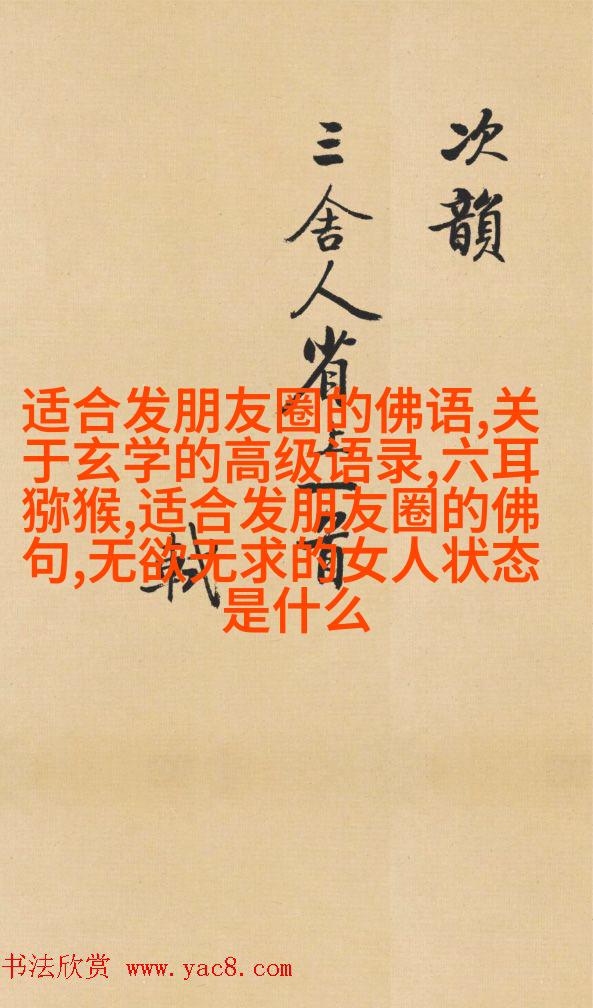 次韻
三舍人省上一首
軾
适合发朋友圈的佛语,关
于玄学的高级语录,六耳
猕猴,适合发朋友圈的佛
句,无欲无求的女人状态
是什么
书法欣赏 www.yac8.com